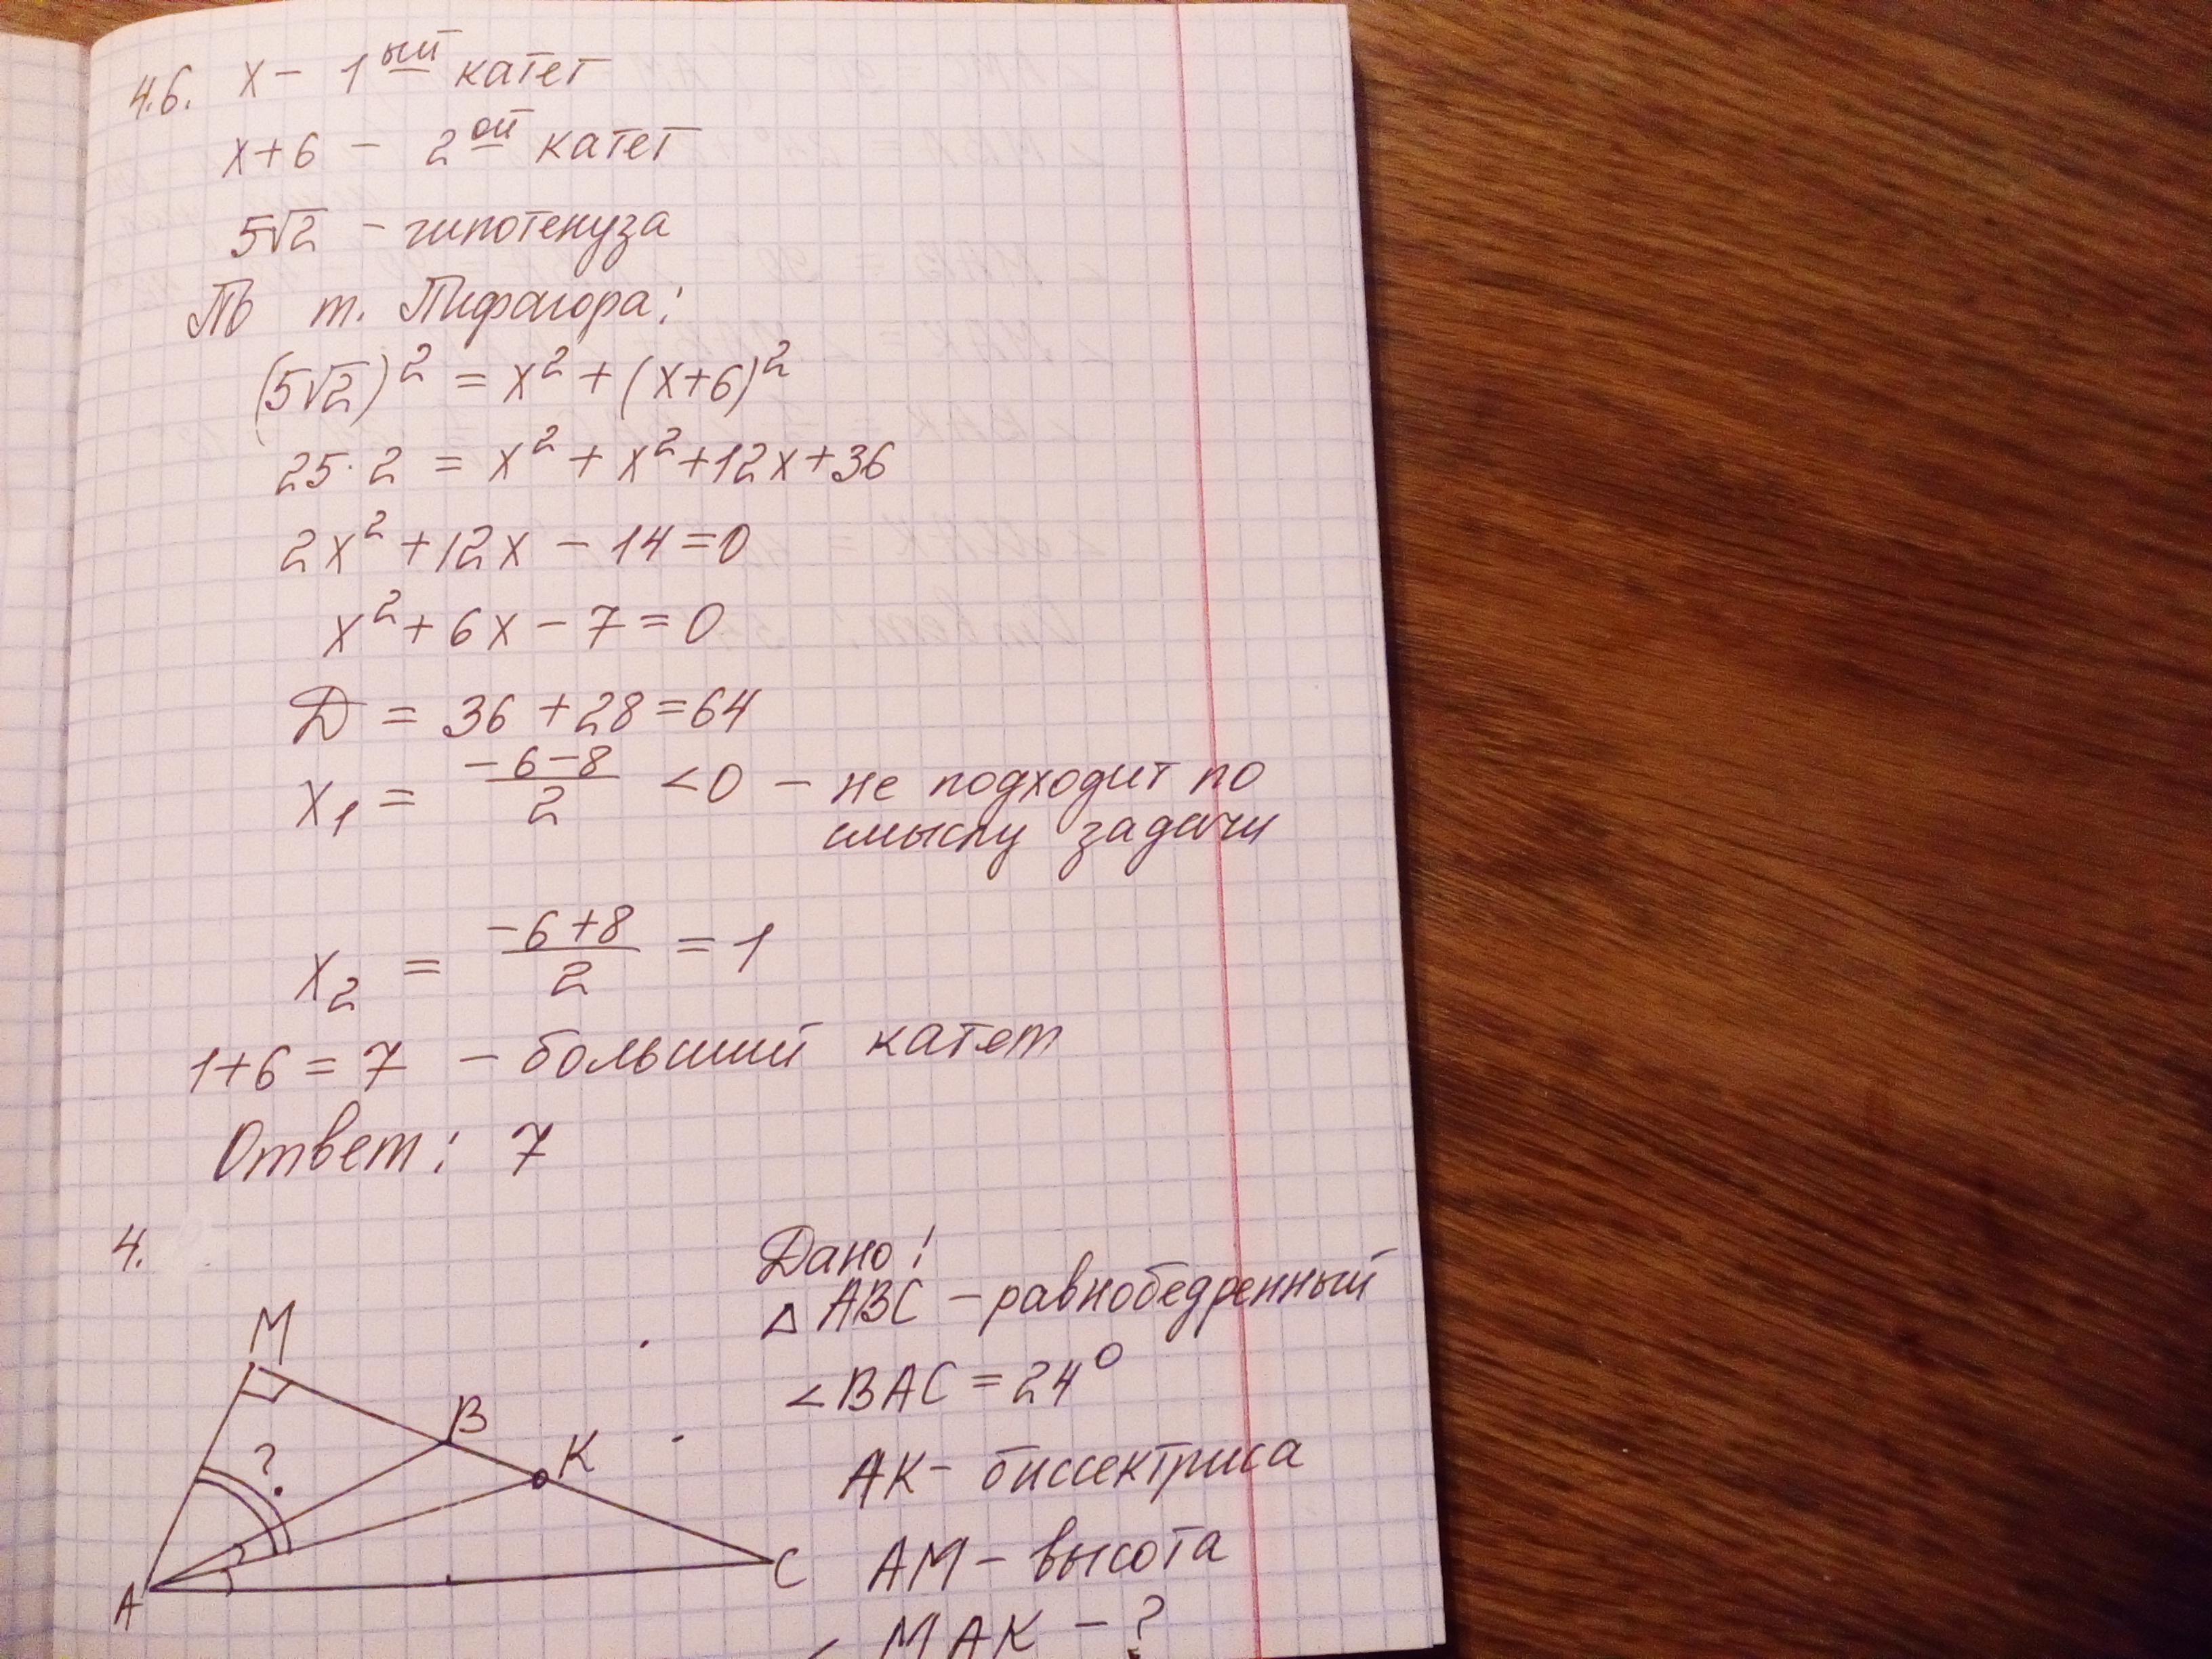 4.6. x – 1ый катет
x+6 – 2ой катет
5√2 – гипотенуза
По т. Пифагора:
(5√2)² = x² + (x+6)²
25·2 = x² + x² + 12x + 36
2x² + 12x – 14 = 0
x² + 6x – 7 = 0
D = 36 + 28 = 64
x₁ = (–6–8)/2 < 0 – не подходит по
смыслу задачи
x₂ = (–6+8)/2 = 1
1+6 = 7 – больший катет
Ответ: 7
4.
Дано:
△ ABC – равнобедренный
∠BAC = 24°
AK – биссектриса
AM – высота
∠ MAK – ?
M
B
K
?
A
C